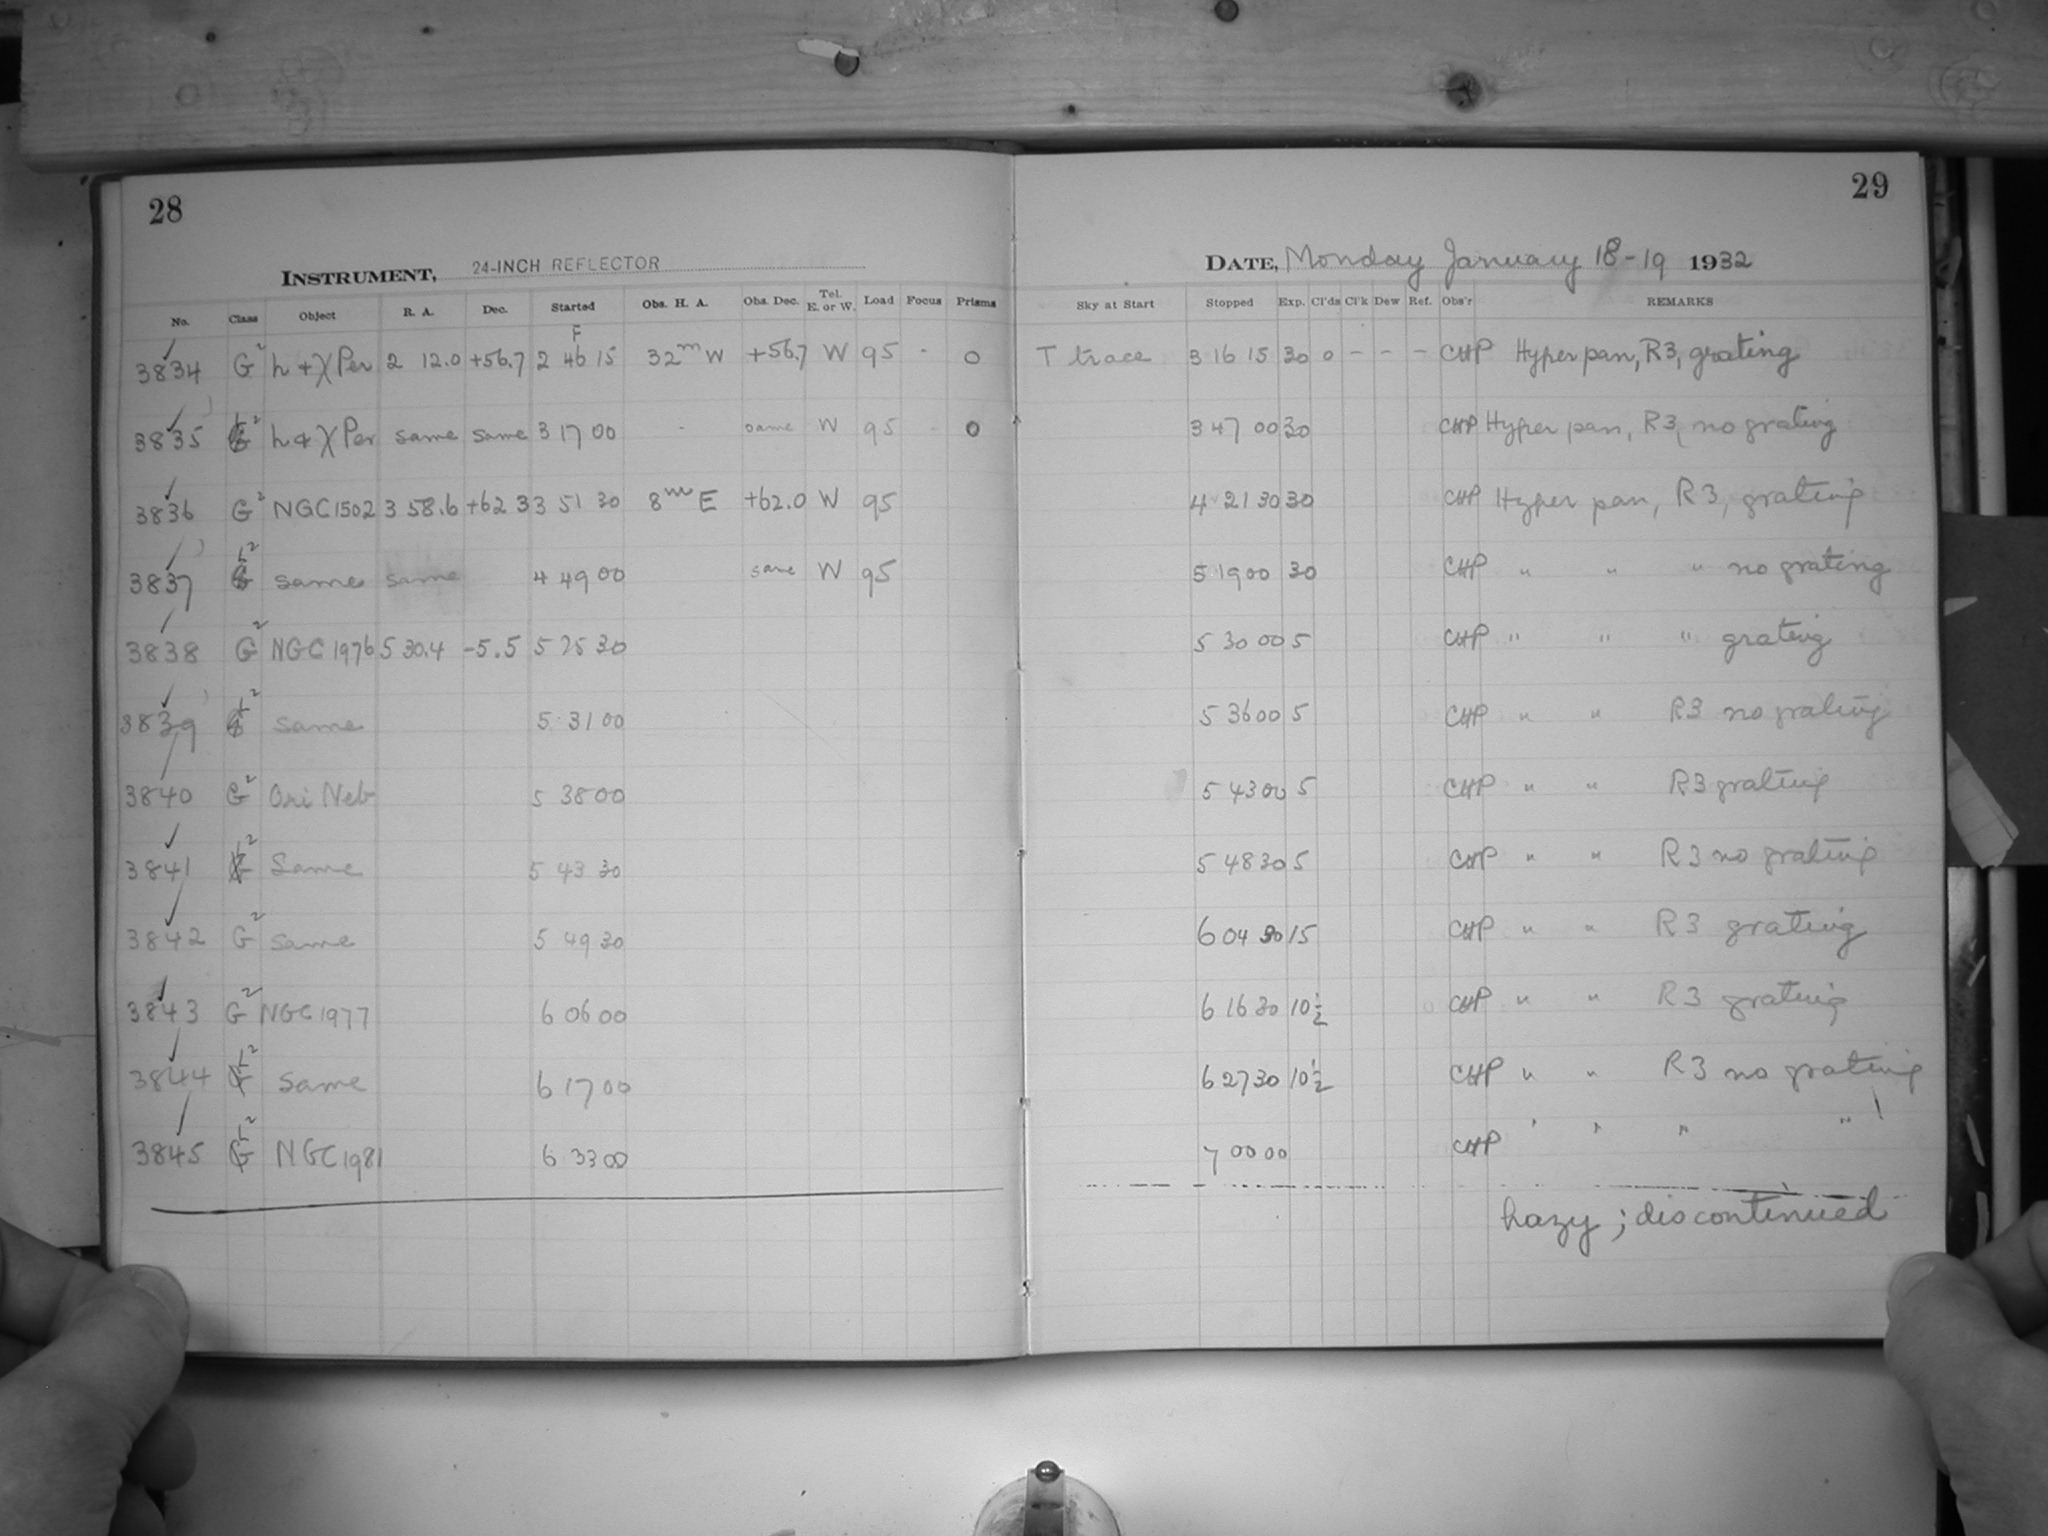 28
29
INSTRUMENT, 24-INCH REFLECTOR
DATE, Monday January 18-19 1932
No. Class Object R. A. Dec. Started Obs. H. A. Obs. Dec. Tel. E. or W. Load Focus Prisms Sky at Start Stopped Exp. Cl'ds Cl'k Dew Ref. Obs'r REMARKS
F
3834 G² h + χ Per 2 12.0 +56.7 2 46 15 32ᵐ W +56.7 W 95 - 0 T trace 3 16 15 30 0 - - - CHP Hyper pan, R3, grating
3835 h + χ Per same same 3 17 00 - same W 95 - 0 3 47 00 30 CHP Hyper pan, R3, no grating
3836 G² NGC 1502 3 58.6 +62 3 3 51 30 8ᵐ E +62.0 W 95 4 21 30 30 CHP Hyper pan, R3, grating
3837 same same 4 49 00 same W 95 5 19 00 30 CHP " " " no grating
3838 G² NGC 1976 5 30.4 -5.5 5 25 30 5 30 00 5 CHP " " " grating
3839 same 5 31 00 5 36 00 5 CHP " " R3 no grating
3840 G² Ori Neb 5 38 00 5 43 00 5 CHP " " R3 grating
3841 Same 5 43 30 5 48 30 5 CHP " " R3 no grating
3842 G² same 5 49 30 6 04 30 15 CHP " " R3 grating
3843 G² NGC 1977 6 06 00 6 16 30 10½ CHP " " R3 grating
3844 same 6 17 00 6 27 30 10½ CHP " " R3 no grating
3845 NGC 1981 6 33 00 7 00 00 CHP " " " "
hazy; discontinued